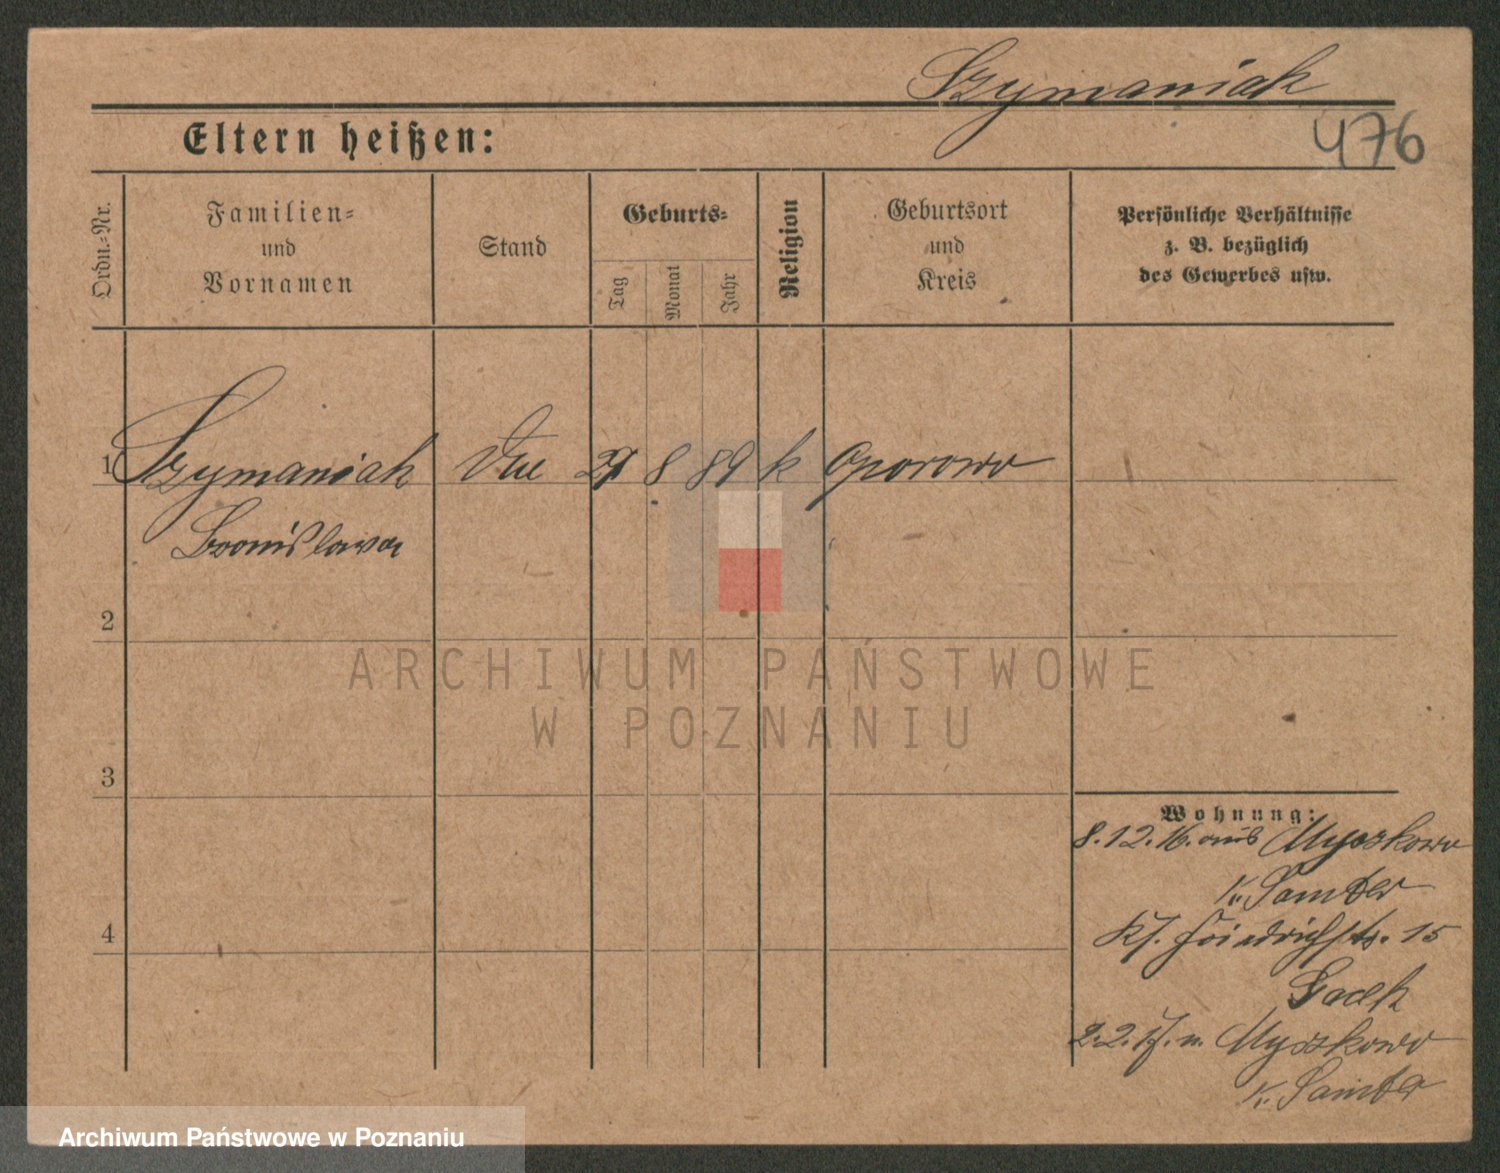 Szymaniak
476
Eltern heißen:
Ordn.-Nr.
Familien-
und
Vornamen
Stand
Geburts-
Tag
Monat
Jahr
Religion
Geburtsort
und
Kreis
Persönliche Verhältnisse
z. B. bezüglich
des Gewerbes usw.
1 Szymaniak 8 89 k Oporowo
Bronislawa
2
3
4
ARCHIWUM PAŃSTWOWE
W POZNANIU
Wohnung:
8.12.16. aus Myszkowo
K. Samter
Friedrichstr. 15
Gaek
2.2.17. n. Myszkowo
K. Samter
Archiwum Państwowe w Poznaniu